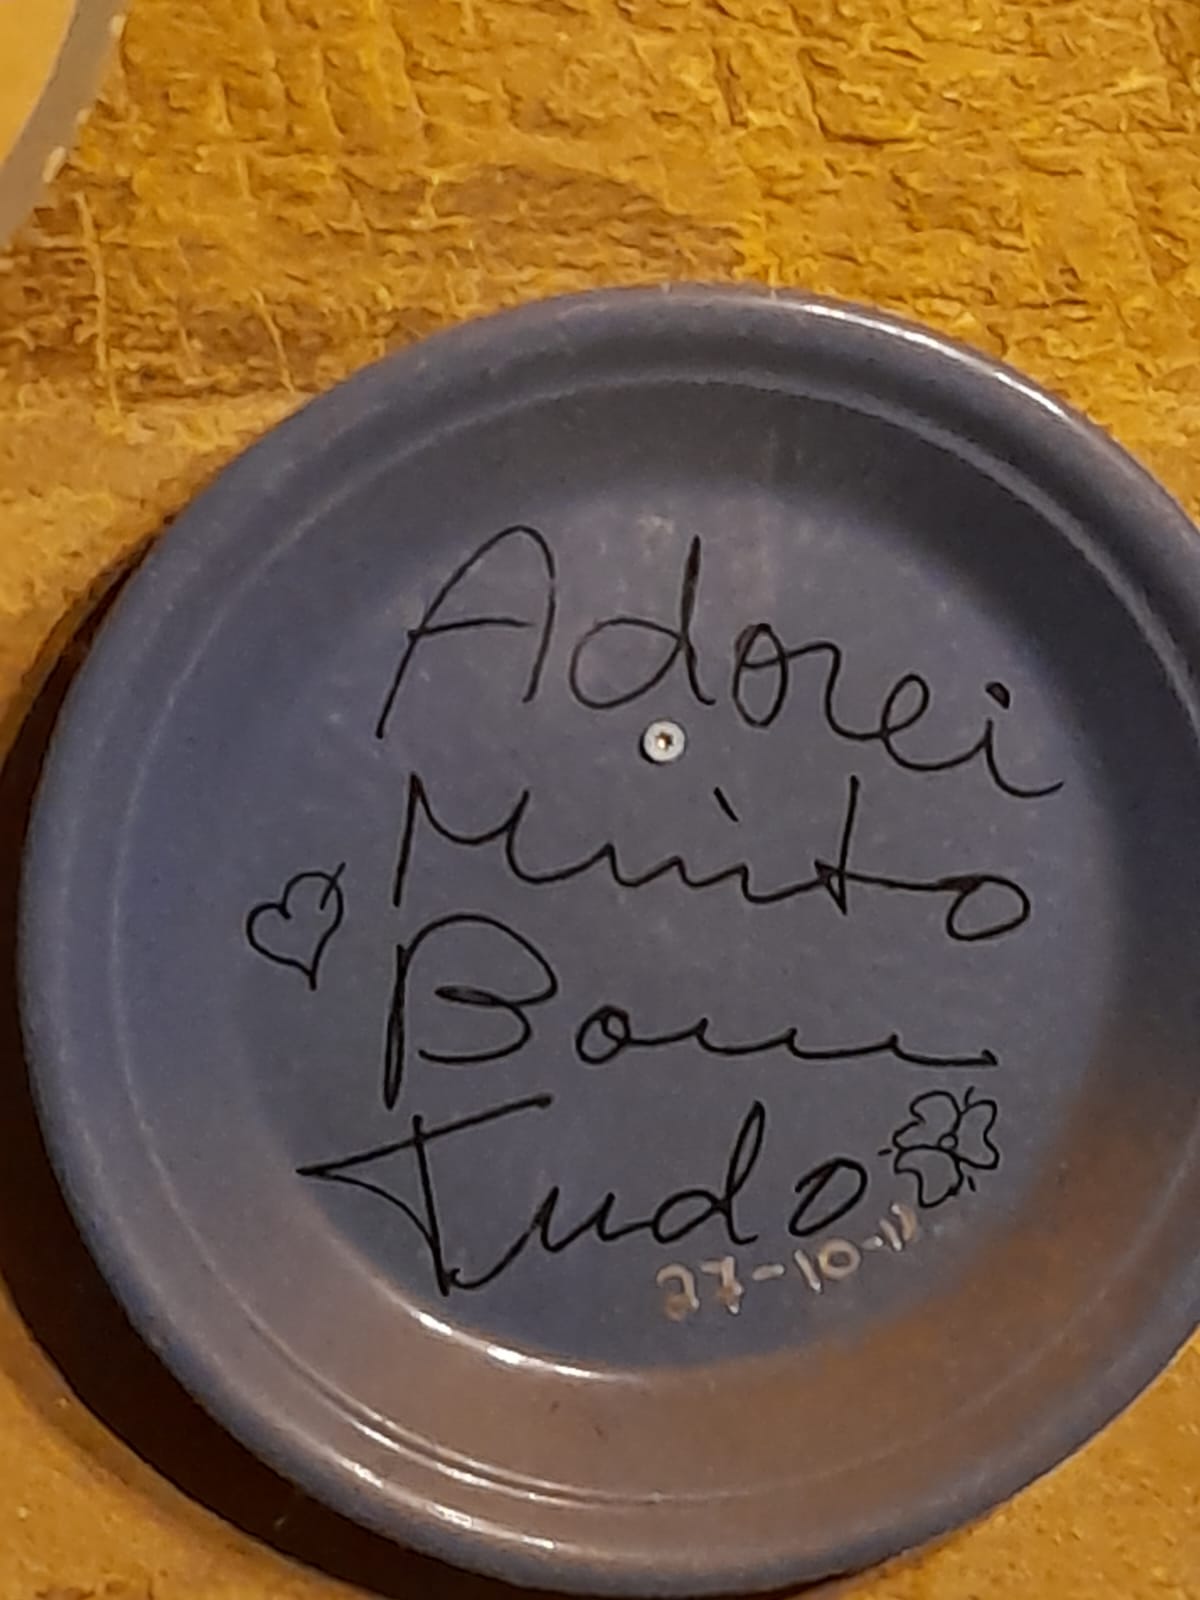 Adorei
Muito
Bom
Tudo
27-10-11